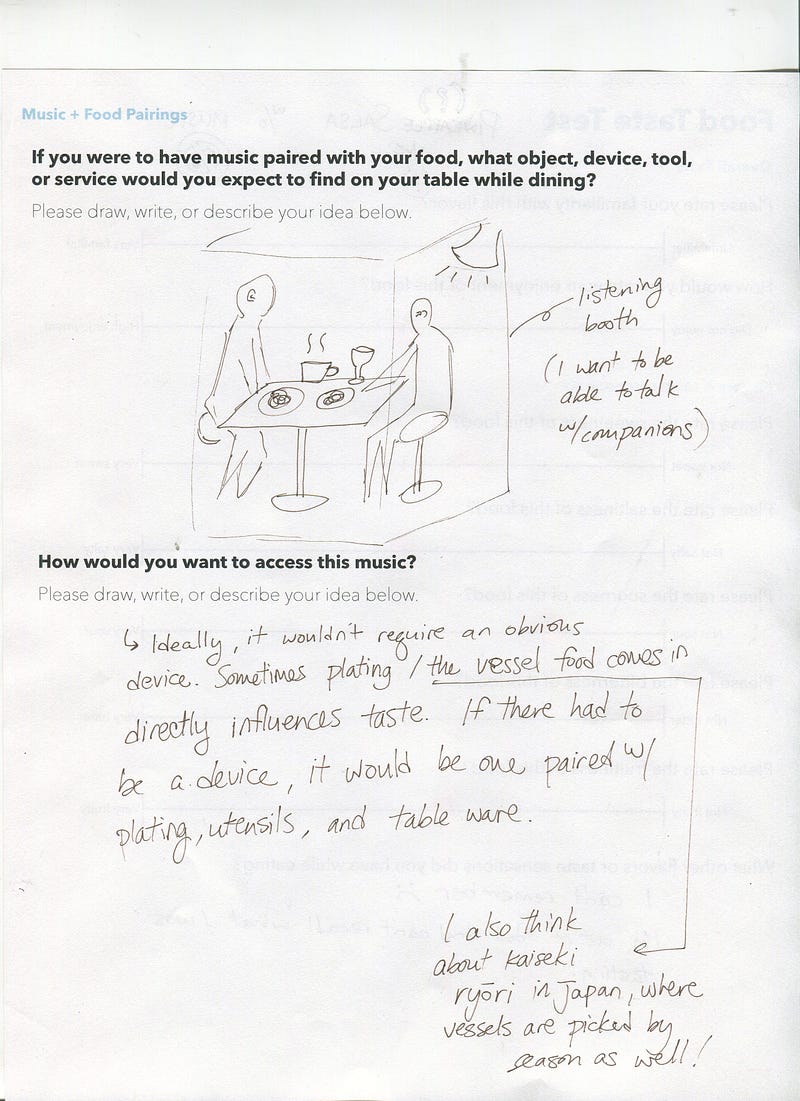 Music + Food Pairings
If you were to have music paired with your food, what object, device, tool,
or service would you expect to find on your table while dining?
Please draw, write, or describe your idea below.
listening
booth
(I want to be
able to talk
w/companions)
How would you want to access this music?
Please draw, write, or describe your idea below.
↳ Ideally, it wouldn't require an obvious
device. Sometimes plating / the vessel food comes in
directly influences taste. If there had to
be a device, it would be one paired w/
plating, utensils, and table ware.
I also think
about kaiseki
ryōri in Japan, where
vessels are picked by
season as well!